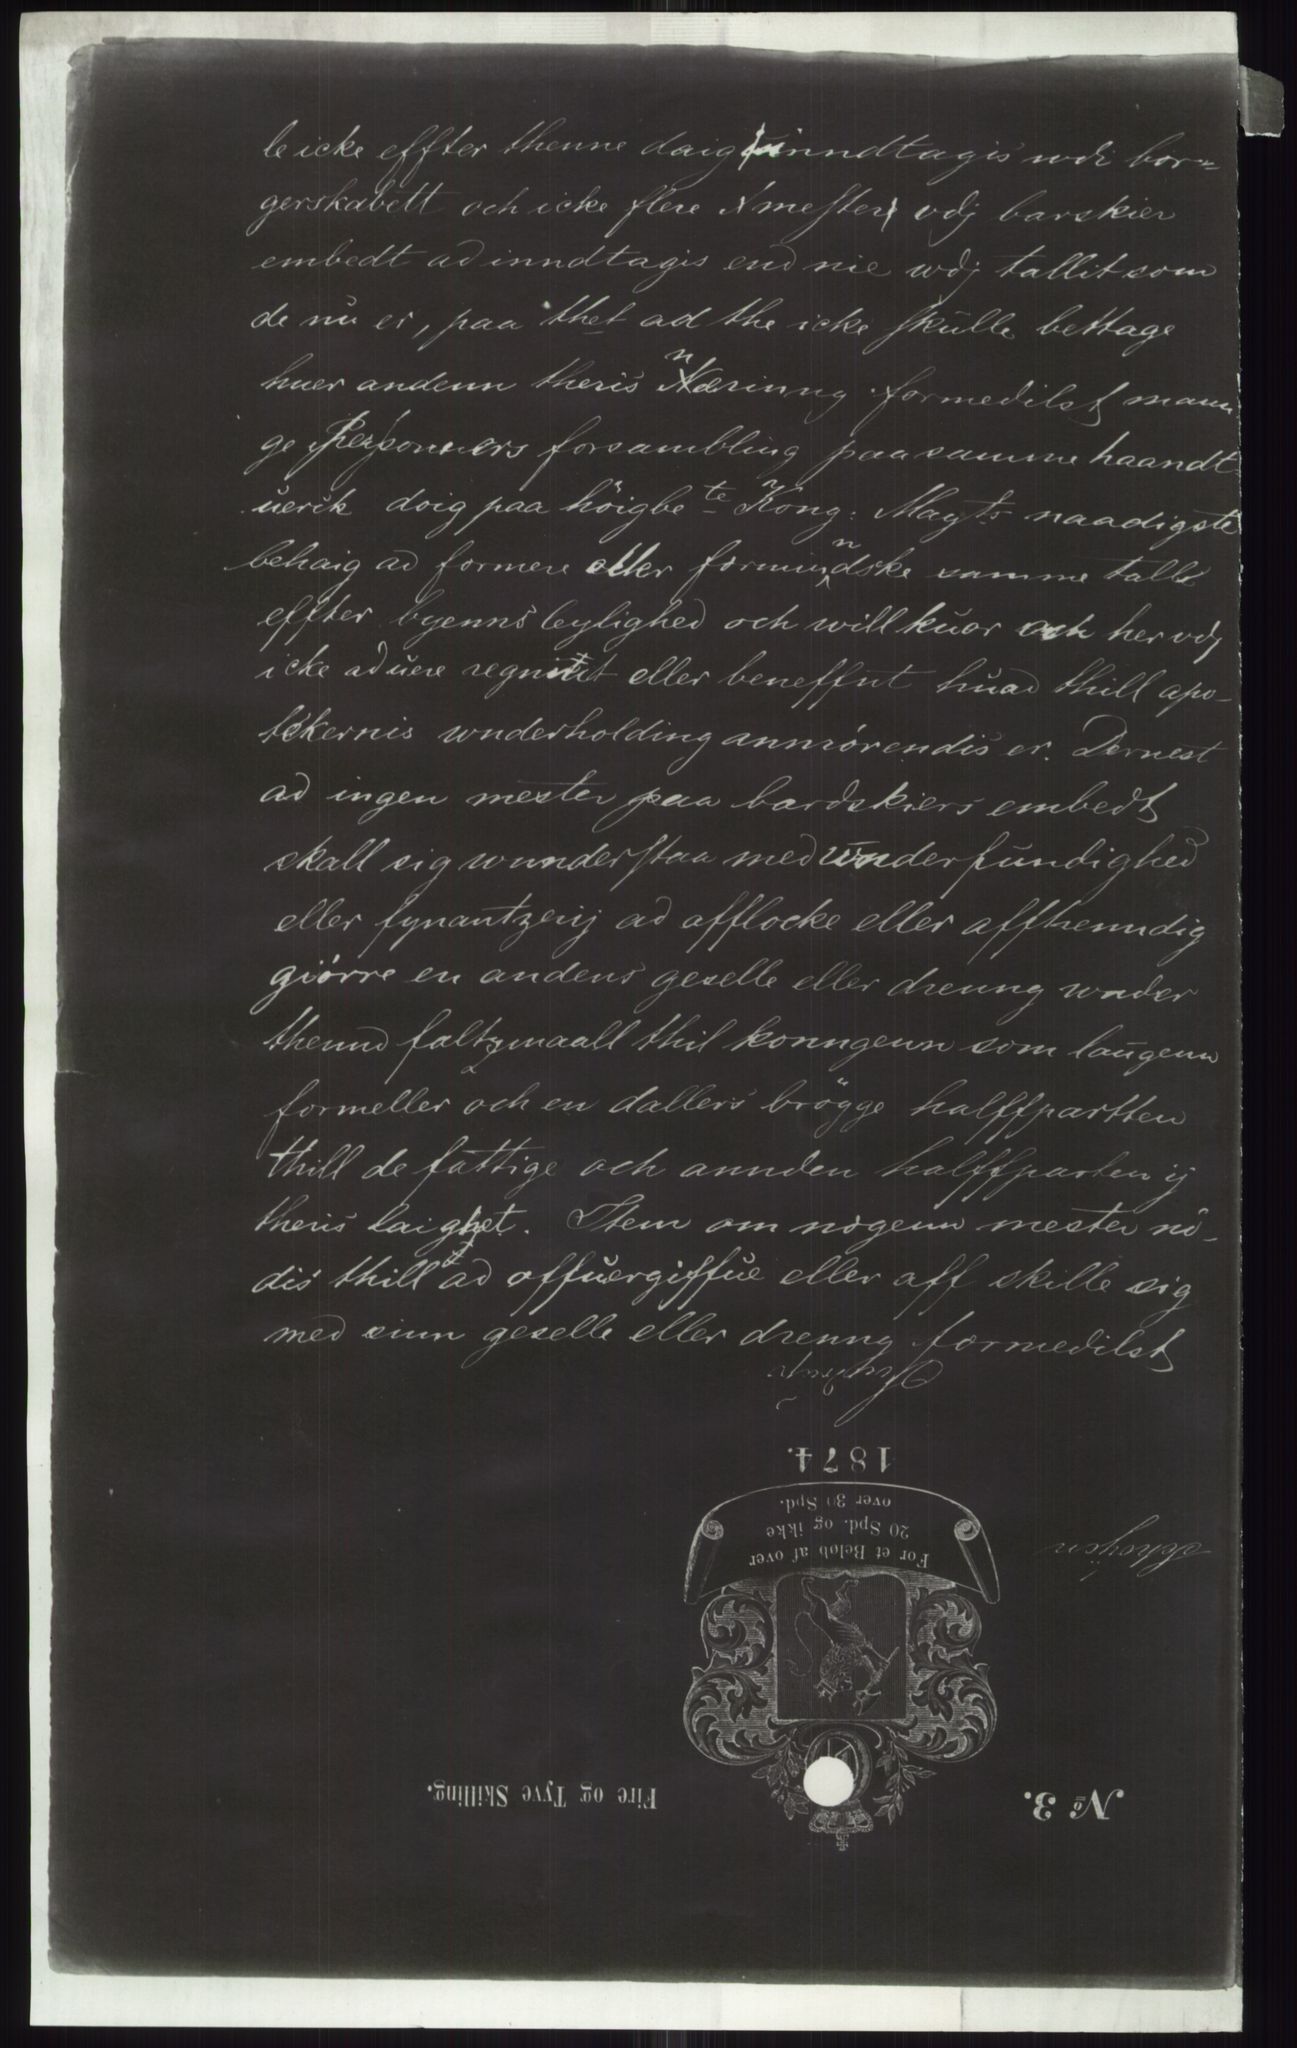 le icke effter thenne daig inndtagis wdi bor-
gerskabett och icke flere mester vdj barskier
embedt ad inndtagis end nie wdj tallit som
de nu er, paa thet ad the icke skulle bettage
huer andenn theris næring formedilst mann
ge Personners forsambling paa samme haandt
uerck doig paa höigbe te Kong: Mayts naadigste
behaig ad formere eller formindske samme tall
effter byenns leylighed och willkuor och her vdj
icke ad uere regnitt eller beneffnt huad thill apo-
tekernis wnderholding annrörendis er. Dernest
ad ingen mester paa bardskiers embedt
skall sig wunderstaa med wnderfundighed
eller fynantzerij ad afflocke eller affhenndig
giörre en andens geselle eller drenng wnder
thend faltzmaall thil konngenn som laugenn
formeller och en dallers brögge halffpartten
thill de fattige och annden halffparten ij
theris laighet. Item om nogenn mester nö-
dis thill ad offuergiffue eller aff skille sig
med sinn geselle eller drenng formedilst
1874.
over 30 Spd.
20 Spd. og ikke
For et Beløb af over
Fire og Tyve Skilling.
No 3.